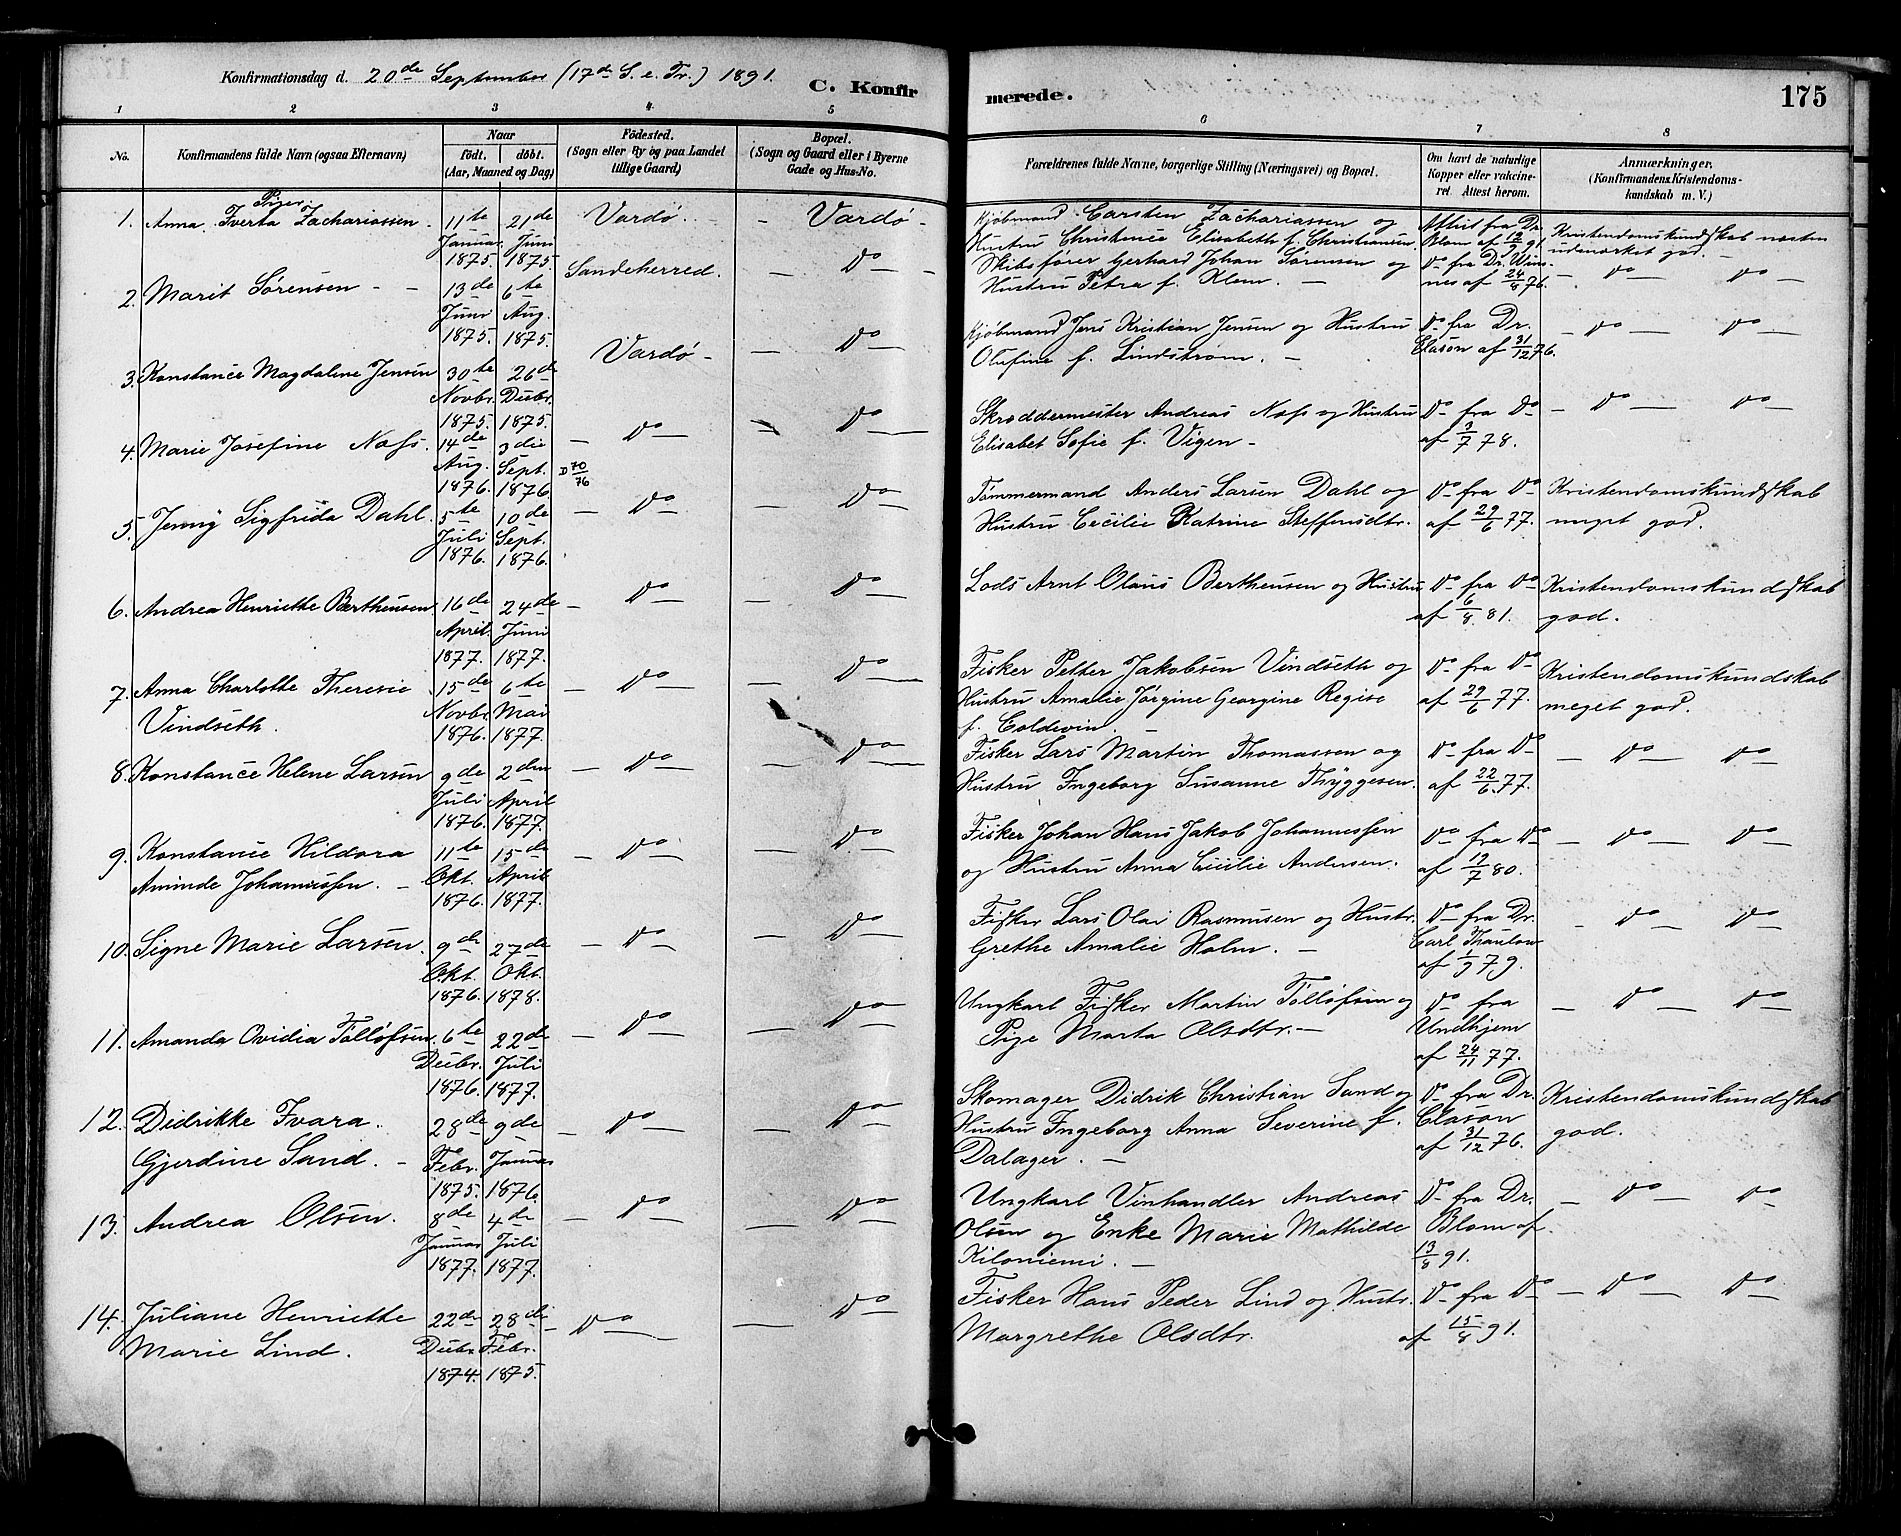 Konfirmationsdag d. 20de September (17de S. e. Tr.) 1891.
C. Konfirmerede.
175
1 2 3 4 5 6 7 8
No.
Konfirmandens fulde Navn (ogsaa Efternavn)
Naar
födt. döbt.
(Aar, Maaned og Dag)
Födested.
(Sogn eller By og paa Landet
tillige Gaard)
Bopæl.
(Sogn og Gaard eller i Byerne
Gade og Hus-No.
Forældrenes fulde Navne, borgerlige Stilling (Næringsvei) og Bopæl.
Om havt de naturlige
Kopper eller vakcine-
ret. Attest herom.
Anmærkninger.
(Konfirmandens Kristendoms-
kundskab m. V.)
Piger
1. Anna Iverta Zachariassen - 11te Januar 1875. 21de Juni 1875. Vardø - Vardø -
Kjøbmand Carsten Zachariassen og
Hustru Christence Elisabeth f. Christiansen
Attest fra Dr.
Blom af 12/9 91.
Kristendomskundskab næsten
udmærket god. -
2. Marit Sørensen - - 13de Juni 1875. 6te Aug. 1875. Sandeherred. - Do -
Skibsfører Gerhard Johan Sørensen og
Hustru Petra f. Klem. -
Do fra Dr. Win-
nes af 24/8 76.
- Do - Do
3. Konstance Magdalene Jensen 30te Novbr. 1875. 26de Decbr. 1875. Vardø - - Do -
Kjøbmand Jens Kristian Jensen og Hustru
Olufine f. Lindstrøm. -
Do fra Dr.
Clason af 31/12 76.
- Do - Do
4. Marie Josefine Næss. 14de Aug. 1876. 3die Sept. 1876. - Do - Do
D 70/76
Skræddermester Andreas Næss og Hustru
Elisabet Sofie f. Vigen -
Do fra Do
af 3/7 78.
- Do - Do
5. Jenny Sigfrida Dahl. 5te Juli 1876. 10de Sept. 1876. - Do - Do -
Tømmermand Anders Larsen Dahl og
Hustru Cecilie Katrine Steffensdtr.
Do fra Do
af 29/6 77.
Kristendomskundskab
meget god.
6. Andrea Henriette Bertheusen. 16de April. 1877. 24de Juni 1877. - Do - Do -
Lods Arnt Olaus Bertheusen og Hustru
Do fra Do
af 6/8 81.
Kristendomskundskab
god.
7. Anna Charlotte Theresie
Vindseth. 15de Novbr. 1876. 6te Mai 1877. - Do - Do -
Fisker Petter Jakobsen Vindseth og
Hustru Amalie Jørgine Georgine Regise
f. Coldevin. -
Do fra Do
af 29/6 77.
Kristendomskundskab
meget god.
8. Konstance Helene Larsen 9de Juli 1876. 2den April 1877. - Do - Do -
Fisker Lars Martin Thomassen og
Hustru Ingeborg Susanne Thyggesen.
Do fra Do
af 22/6 77.
- Do - Do
9. Konstance Hildora
Aminde Johannessen. - 11te Okt. 1876. 15de April 1877. - Do - Do -
Fisker Johan Hans Jakob Johannessen
og Hustru Anna Cecilie Andersen.
Do fra Do
af 19/7 80.
- Do - Do
10. Signe Marie Larsen. 9de Okt. 1876. 27de Okt. 1878. - Do - Do -
Fisker Lars Olai Rasmusen og Hustr.
Grethe Amalie Holm. -
Do fra Dr.
Carl Thaulow
af 1/9 79.
- Do - Do
11. Amanda Ovidia Tølløfsen. 6te Decbr. 1876. 22de Juli 1877. - Do - Do -
Ungkarl Fisker Martin Tølløfsen og
Pige Marta Olsdtr. -
Do fra
Undhjem
af 24/11 77.
- Do - Do
12. Didrikke Ivara
Gjerdine Sand. - 28de Febr. 1875. 9de Januar 1876. - Do - Do -
Skomager Didrik Christian Sand og
Hustru Ingeborg Anna Severine f.
Dalager. -
Do fra Dr.
Clason
af 31/12 76.
Kristendomskundskab
god.
13. Andrea Olsen. 8de Januar 1877. 4de Juli 1877. - Do - Do -
Ungkarl Vinhandler Andreas
Olsen og Enke Marie Mathilde
Kiloniemi. -
Do fra Dr.
Blom af
13/8 91.
- Do - Do
14. Juliane Henriette
Marie Lind. 22de Decbr. 1874. 28de Febr. 1875. - Do - Do -
Fisker Hans Peder Lind og Hustr.
Margrethe Olsdtr.
Do fra Do
af 15/8 91.
- Do - Do